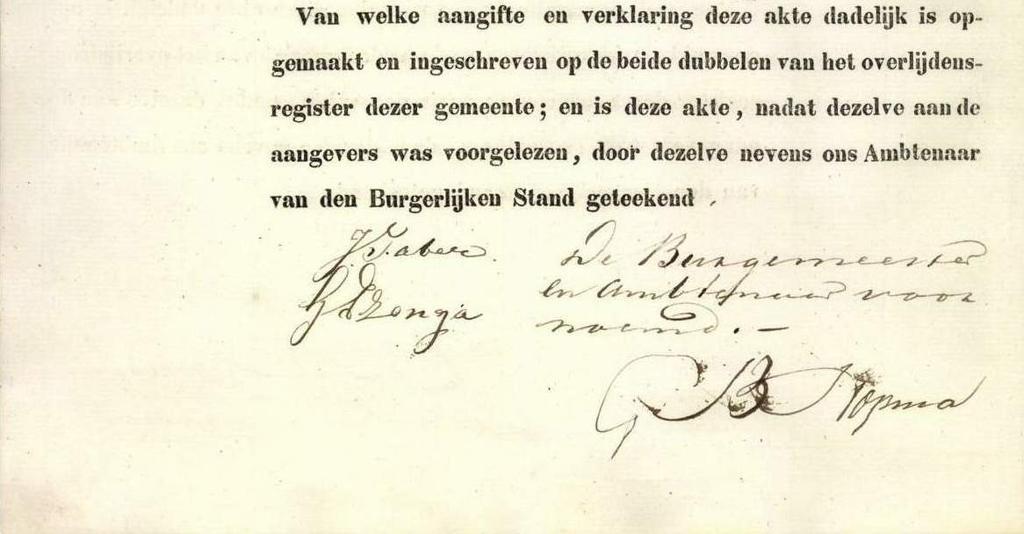 Van welke aangifte en verklaring deze akte dadelijk is op-
gemaakt en ingeschreven op de beide dubbelen van het overlijdens-
register dezer gemeente; en is deze akte, nadat dezelve aan de
aangevers was voorgelezen, door dezelve nevens ons Ambtenaar
van den Burgerlijken Stand geteekend.
De Burgemeester
en Ambtenaar voor
noemd. —